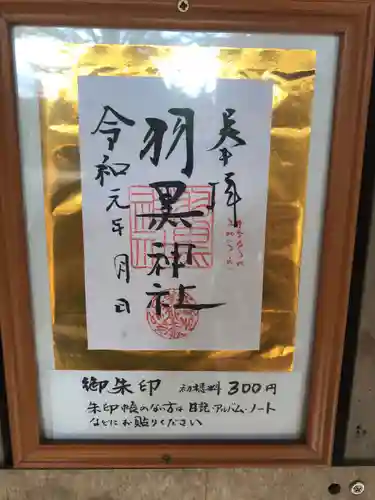 奉拝
羽黒神社
令和元年 月 日
御朱印 初穂料 300円
朱印帳のない方は 日記・アルバム・ノート
などにお貼りください